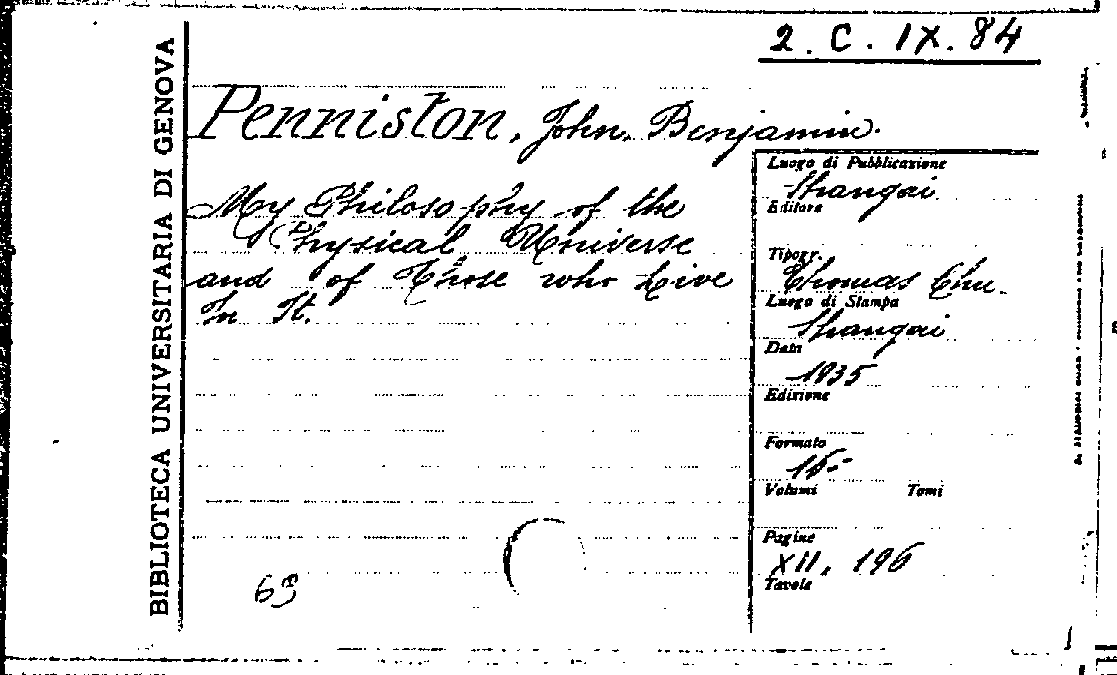 2. C. IX. 84
BIBLIOTECA UNIVERSITARIA DI GENOVA
Penniston, John, Benjamin.
My Philosophy of the
Physical Universe
and of Those who Live
In It.
69
Luogo di Pubblicazione
Shangai
Editore
Tipogr.
Thomas Chu.
Luogo di Stampa
Shangai
Data
1935
Edizione
Formato
16-
Volumi Tomi
Pagine
XII, 196
Tavole